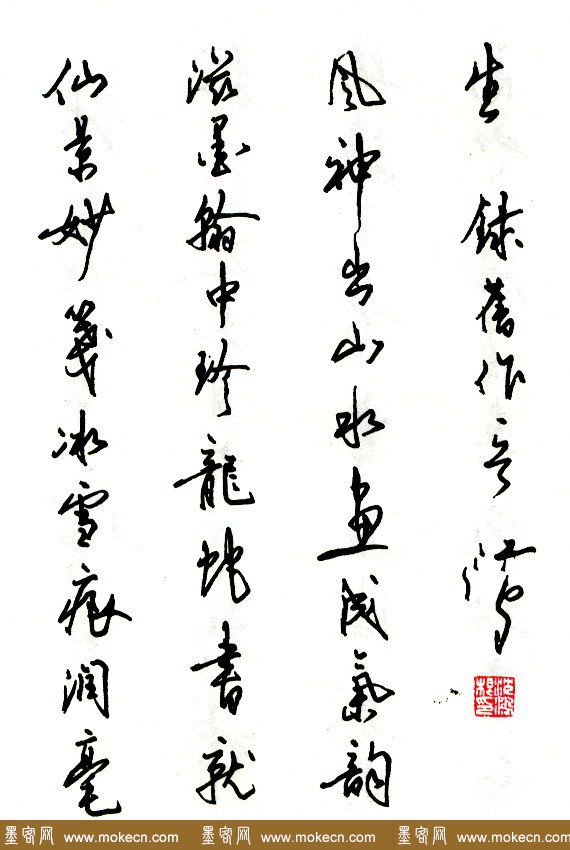 仙景妙箋冰雪痕潤毫
滋墨翰中珍龍蛇書就
風神出山水畫成氣韻
生 錄舊作
墨客网 www.mokecn.com 墨客网 www.mokecn.com 墨客网 www.mokecn.com